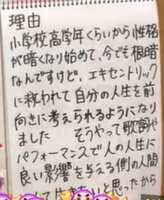 理由
小学校高学年くらいから性格
が暗くなり始めて、今でも根暗
なんですけど。エキセントリック
に救われて自分の人生を前
向きに考えられるようになり
ました そうやって歌詞や
パフォーマンスで人の人生に
良い影響を与える側の人間
として生きたいと思ったから